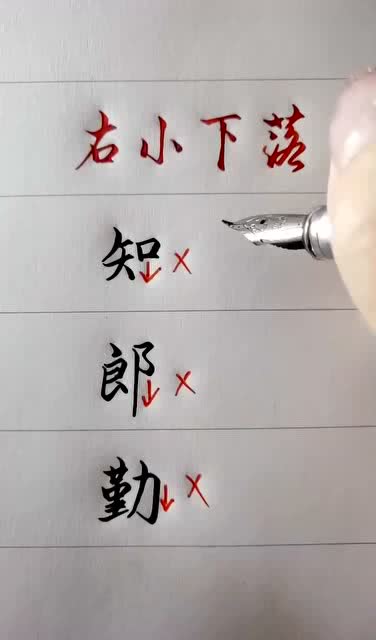 右小下落
知↓×
郎↓×
勤↓×